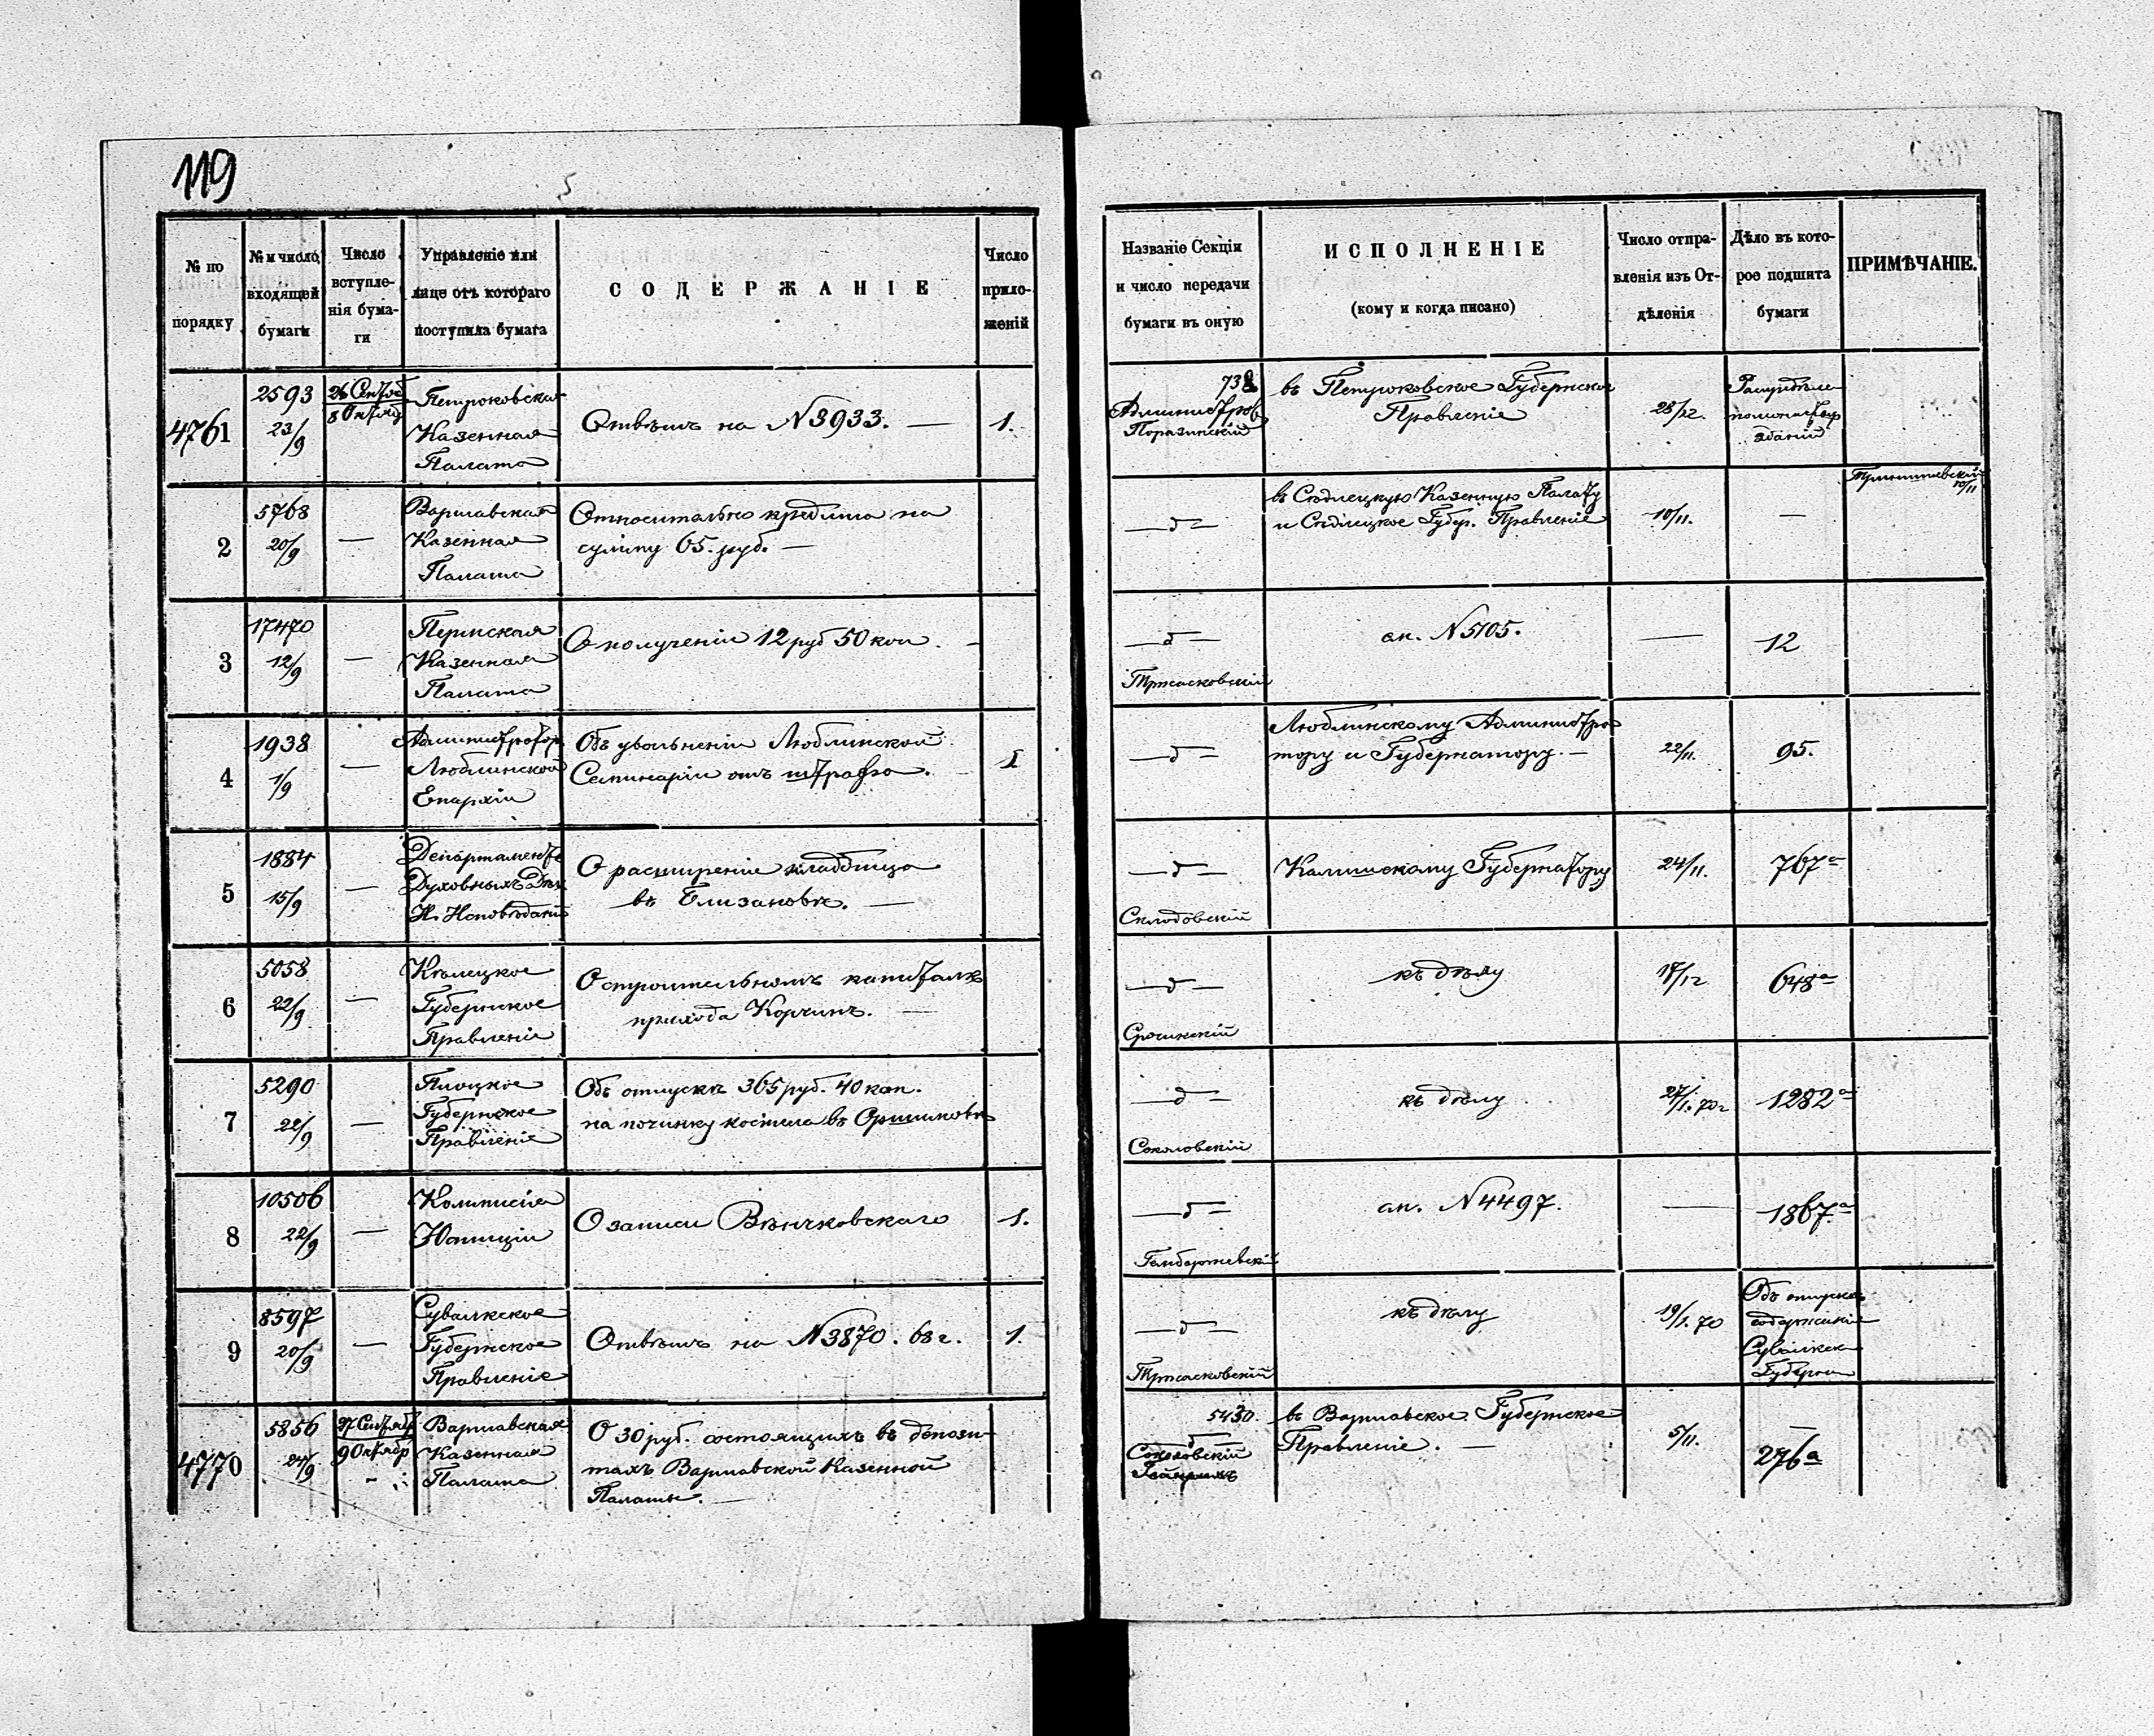 119
№ по
порядку
№ и число
входящей
бумаги
Число
вступле-
нія бума-
ги
Управленіе или
лице отъ котораго
поступила бумага
СОДЕРЖАНІЕ
Число
прило-
женій
Названіе Секціи
и число передачи
бумаги въ оную
ИСПОЛНЕНІЕ
(кому и когда писано)
Число отпра-
вленія изъ От-
дѣленія
Дѣло въ кото-
рое подшита
бумаги
ПРИМѢЧАНІЕ.
4761
2593
23/9
26 Сентяб
8 Октяб
Петроковская
Казенная
Палата
Отвѣтъ на № 3933. —
1.
738
Администров
въ Петроковское Губернское
Правленіе
28/12.
зданій
2
5768
20/9
—
Варшавская
Казенная
Палата
Относительно кредита на
сумму 65. руб. —
— д —
въ Сѣдлецкую Казенную Палату
и Сѣдлецкое Губер. Правленіе
10/11.
—
10/11
3
17470
12/9
—
Пермская
Казенная
Палата
О полученіи 12 руб 50 коп. -
— д —
Тржасковскій
ак. № 5105.
—
12
4
1938
1/9
—
Администратор
Люблинской
Епархіи
Объ увольненіи Люблинской
Семинаріи отъ штрафа. —
1
— д —
Люблинскому Администра
тору и Губернатору. —
22/11.
95.
5
1884
15/9
—
Департамент
Духовныхъ Дѣл
И. Исповѣданій
О расширеніе кладбища
въ Елизановѣ. —
— д —
Склодовскій
Калишскому Губернатору
24/11.
767 а
6
5058
22/9
—
Кѣлецкое
Губернское
Правленіе
О строительномъ капиталѣ
прихода Корчинъ. —
— д —
Срочинскій
къ дѣлу
17/12
648 а
7
5290
22/9
—
Плоцкое
Губернское
Правленіе
Объ отпускѣ 365 руб. 40 коп.
на починку костела въ Оршимовѣ
— д —
Соколовскій
къ дѣлу
27/1. 70 г
1282 а
8
10506
22/9
—
Коммисія
Юстиціи
О записи Вѣнчковскаго
1.
— д —
Гембаржевскій
ак. № 4497.
—
1867. а
9
8597
20/9
—
Сувалкское
Губернское
Правленіе
Отвѣтъ на № 3870. 68 г.
1.
— д —
Тржасковскій
къ дѣлу
19/1. 70
Объ отпускѣ
содержанія
Сувалкск
Губерн
4770
5856
24/9
27 Сентябр
9 Октябр
Варшавская
Казенная
Палата
О 30 руб. состоящихъ въ депози-
тахъ Варшавской Казенной
Палаты. —
5430.
Соколовскій
въ Варшавское Губернское
Правленіе. —
5/11.
—
276 а